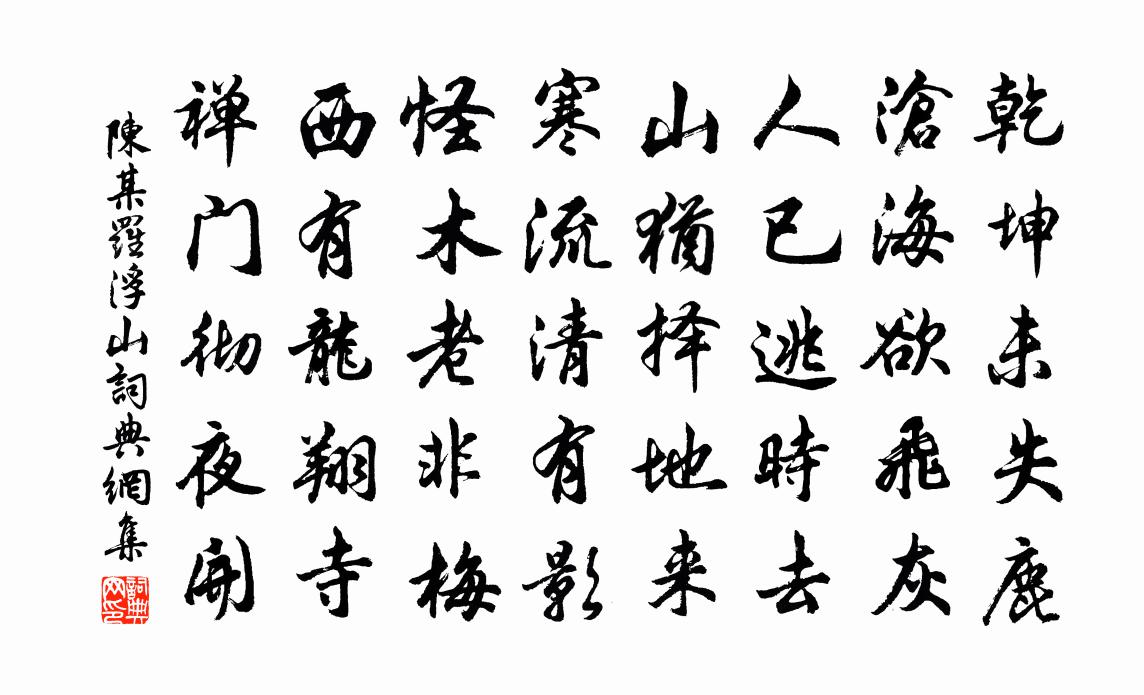 乾坤未失鹿
滄海欲飛灰
人已逃時去
山猶择地来
寒流清有影
怪木老非梅
西有龍翔寺
禅门彻夜開
陳某羅浮山詞典網集
詞典网印